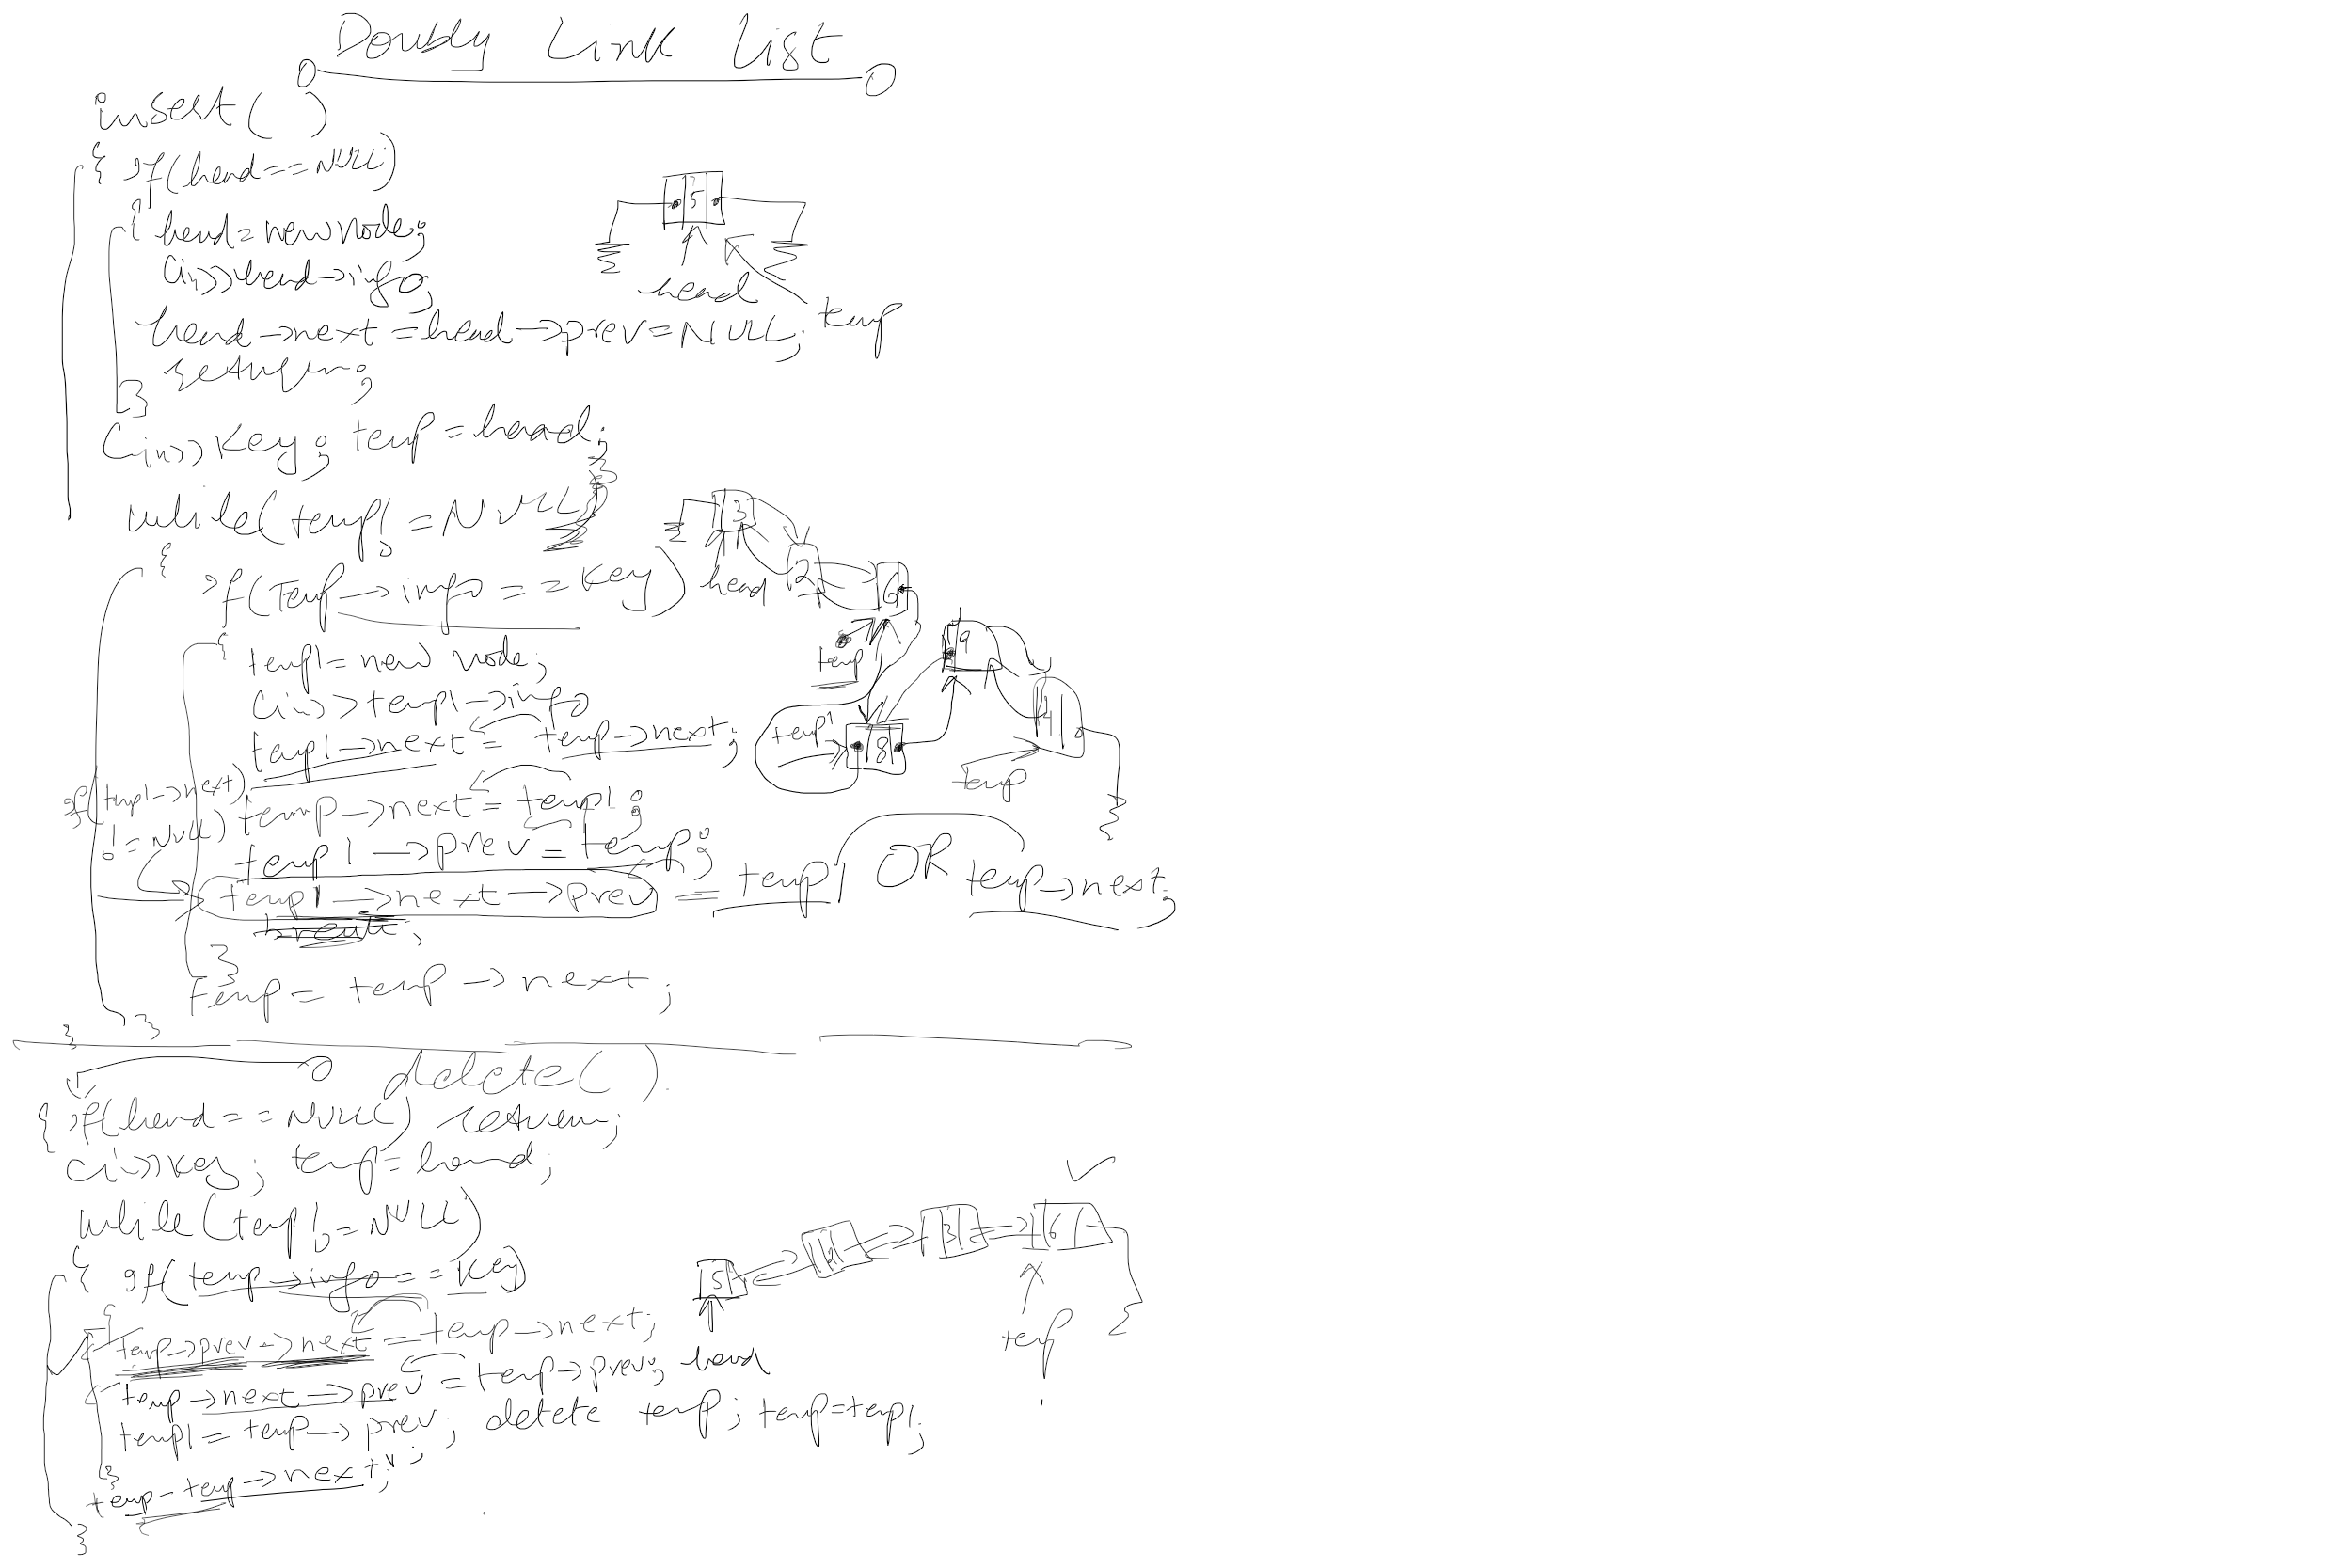 Doubly Link List
insert( )
{ if(head==NULL)
{ head=new node;
Cin>>head->info;
head->next=head->prev=NULL;
return;
}
5
head
temp
Cin>>Key; temp=head;
while(temp!=NULL)
{
if(Temp->info==Key)
{
temp1=new node;
Cin>>temp1->info
temp1->next=temp->next;
if(temp1->next
!=NULL)
temp->next=temp1;
temp1->prev=temp;
temp1->next->prev=temp1 OR temp->next;
break;
}
Temp=temp->next;
}
}
3
head
2
6
temp
9
temp1
8
4
temp
delete( )
{ if(head==NULL) return;
cin>>key; temp=head;
while(temp!=NULL)
{ if(temp->info==Key)
{
temp->prev->next=temp->next;
temp->next->prev=temp->prev;
temp1=temp->prev; delete temp; temp=temp1;
}
temp=temp->next;
}
5
2
3
6
head
temp